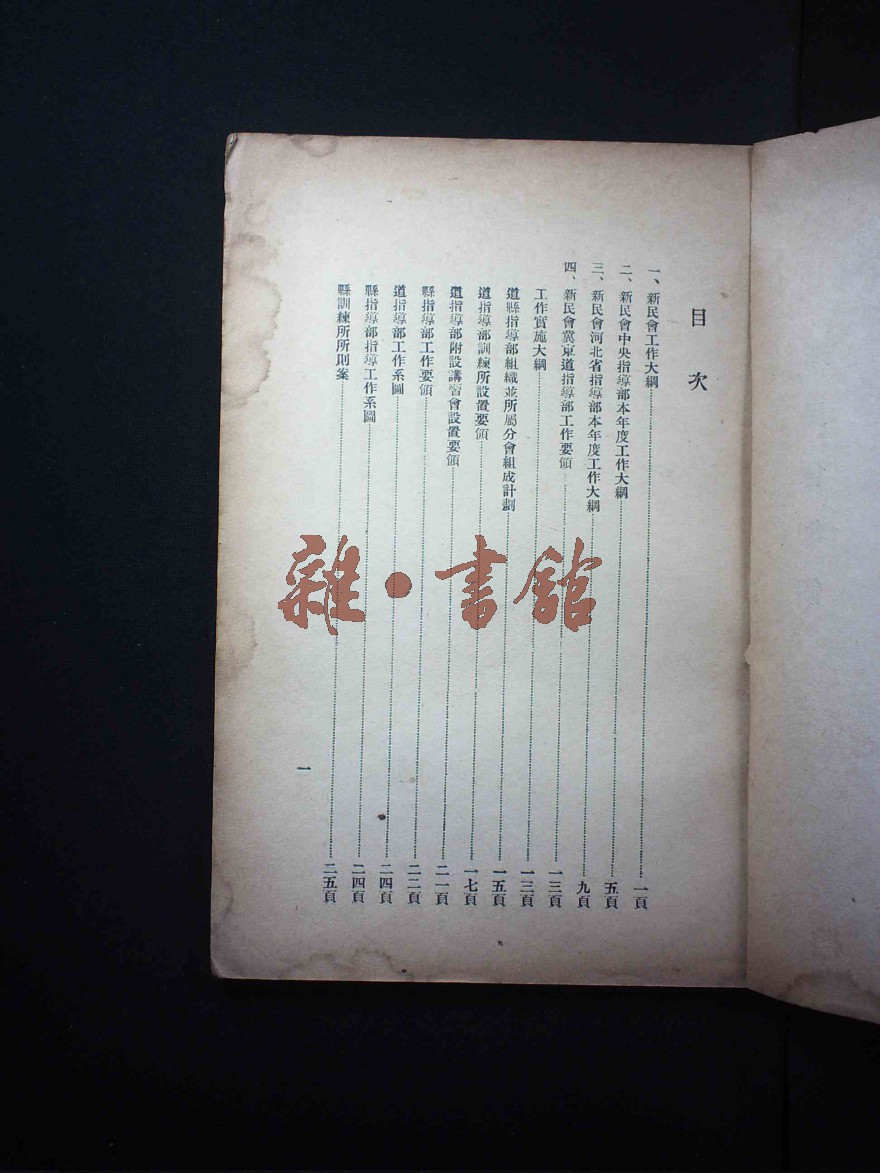 目次
一、新民會工作大綱…………一頁
二、新民會中央指導部本年度工作大綱…………五頁
三、新民會河北省指導部本年度工作大綱…………九頁
四、新民會冀東道指導部工作要領…………一三頁
工作實施大綱…………一三頁
道縣指導部組織並所屬分會組成計劃…………一五頁
道指導部訓練所設置要領…………一七頁
道指導部附設講習會設置要領…………二一頁
縣指導部工作要領…………二二頁
道指導部工作系圖…………二四頁
縣指導部指導工作系圖…………二四頁
縣訓練所所則案…………二五頁
一
雜·書館